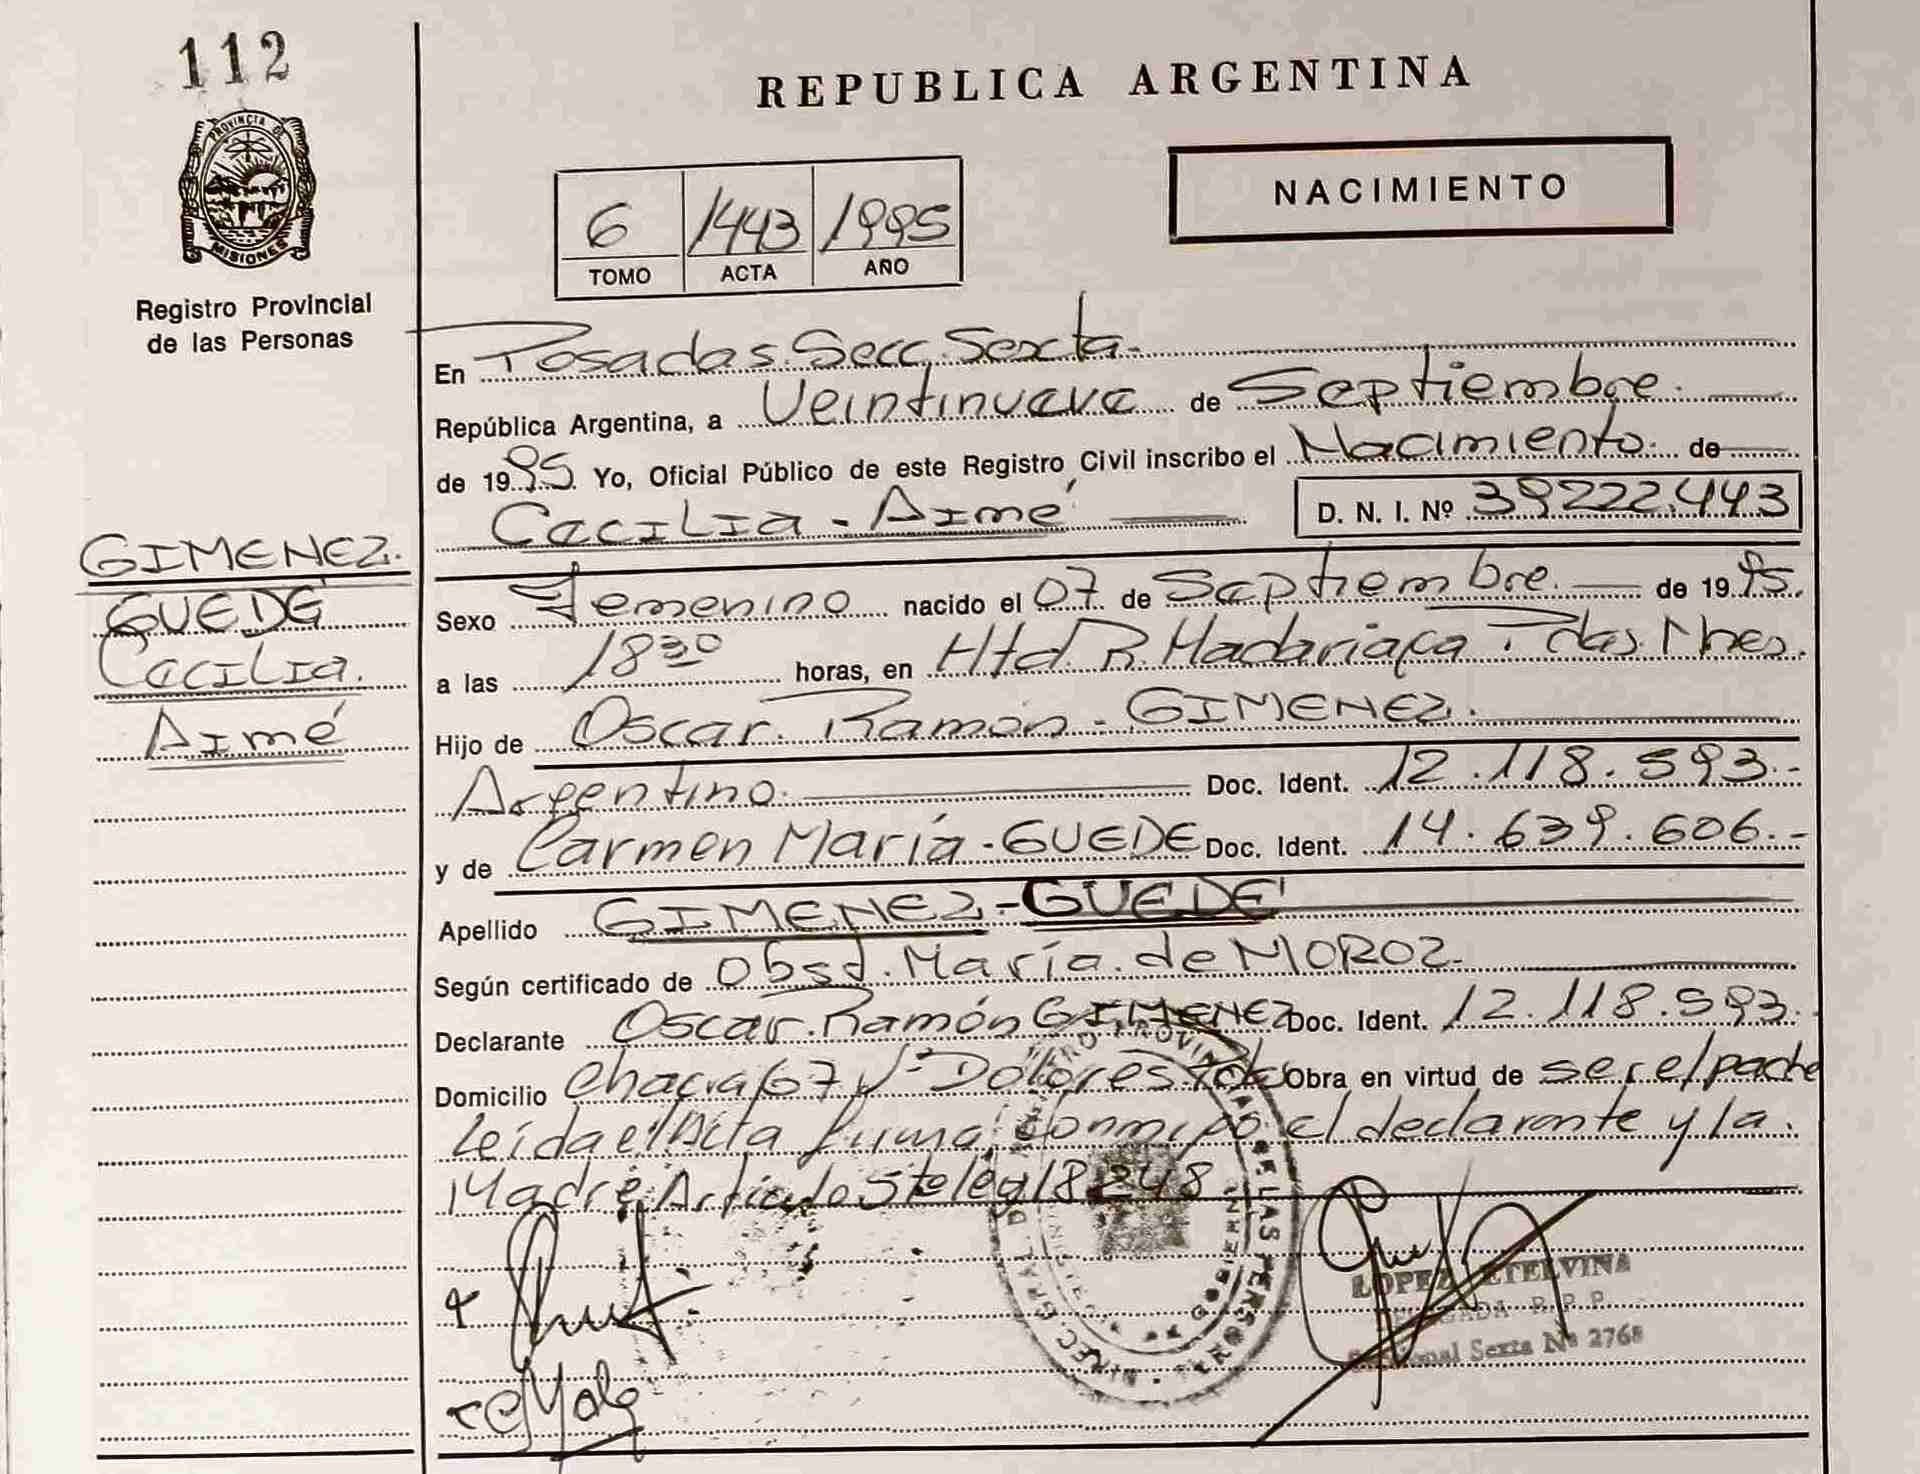 112
PROVINCIA DE
MISIONES
Registro Provincial
de las Personas
GIMENEZ.
GUEDE
Cecilia.
Aimé
REPUBLICA ARGENTINA
NACIMIENTO
6 1443 1995
TOMO ACTA AÑO
En Posadas. Secc. Sexta.
República Argentina, a Veintinueve de Septiembre.
de 1995 Yo, Oficial Público de este Registro Civil inscribo el Nacimiento. de
Cecilia - Aimé D. N. I. Nº 39222.443
Sexo Femenino nacido el 07 de Septiembre. de 1995.
a las 18 30 horas, en Htd. R. Madariaga Pdas. Mnes.
Hijo de Oscar. Ramón - GIMENEZ.
Argentino. Doc. Ident. 12.118.593.-
y de Carmen María - GUEDE Doc. Ident. 14.639.606.-
Apellido GIMENEZ - GUEDE
Según certificado de Obsd. María de MOROZ.
Declarante Oscar. Ramón GIMENEZ Doc. Ident. 12.118.593.
Domicilio Chacra 67 Vº Dolores Pdas Obra en virtud de ser el padre
Leída el Acta firma conmigo el declarante y la
Madre Artículo 5to ley 18248
REGISTRO PROVINCIAL DE LAS PERSONAS
LOPEZ ETELVINA
R. P. P.
Sexta Nº 2768